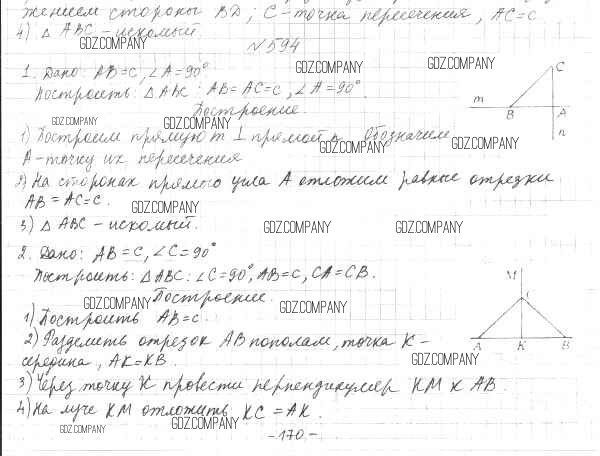 жением стороны BD; C - точка пересечения, AC = c
4) △ ABC - искомый.
GDZ.COMPANY
№ 594
1. Дано: AB = c, ∠A = 90°
GDZ.COMPANY GDZ.COMPANY
Построить: △ ABC: AB = AC = c, ∠A = 90°.
GDZ.COMPANY
Построение.
C
m B A
n
GDZ.COMPANY GDZ.COMPANY
1) Построим прямую m ⊥ прямой n. Обозначим
GDZ.COMPANY GDZ.COMPANY
A - точку их пересечения
2) На сторонах прямого угла A отложим равные отрезки
AB = AC = c.
GDZ.COMPANY
3) △ ABC - искомый.
GDZ.COMPANY GDZ.COMPANY
2. Дано: AB = c, ∠C = 90°
Построить: △ ABC: ∠C = 90°, AB = c, CA = CB.
Построение.
GDZ.COMPANY GDZ.COMPANY
M
C
A K B
1) Построить AB = c
2) Разделить отрезок AB пополам, точка K -
середина, AK = KB.
GDZ.COMPANY
3) Через точку K провести перпендикуляр KM к AB.
4) На луче KM отложить KC = AK.
GDZ.COMPANY GDZ.COMPANY
- 170 -